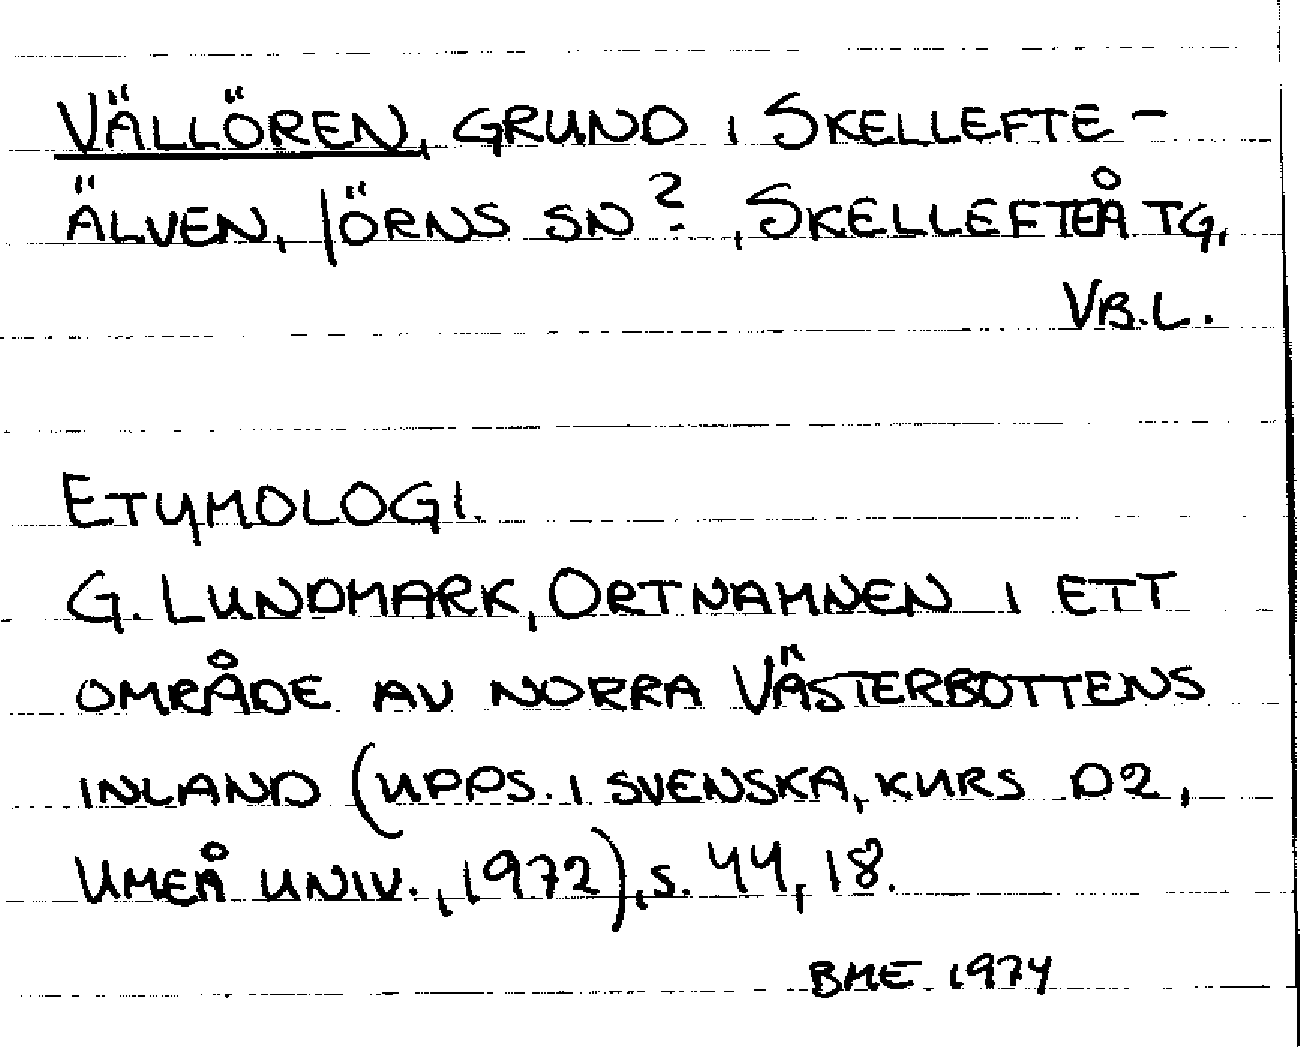 VÄLLÖREN, GRUND I SKELLEFTE-
ÄLVEN, JÖRNS SN?, SKELLEFTEÅ TG,
VB.L.
ETYMOLOGI.
G. LUNDMARK, ORTNAMNEN I ETT
OMRÅDE AV NORRA VÄSTERBOTTENS
INLAND (UPPS. I SVENSKA, KURS D2,
UMEÅ UNIV., 1972), S. 44, 18.
BME 1974